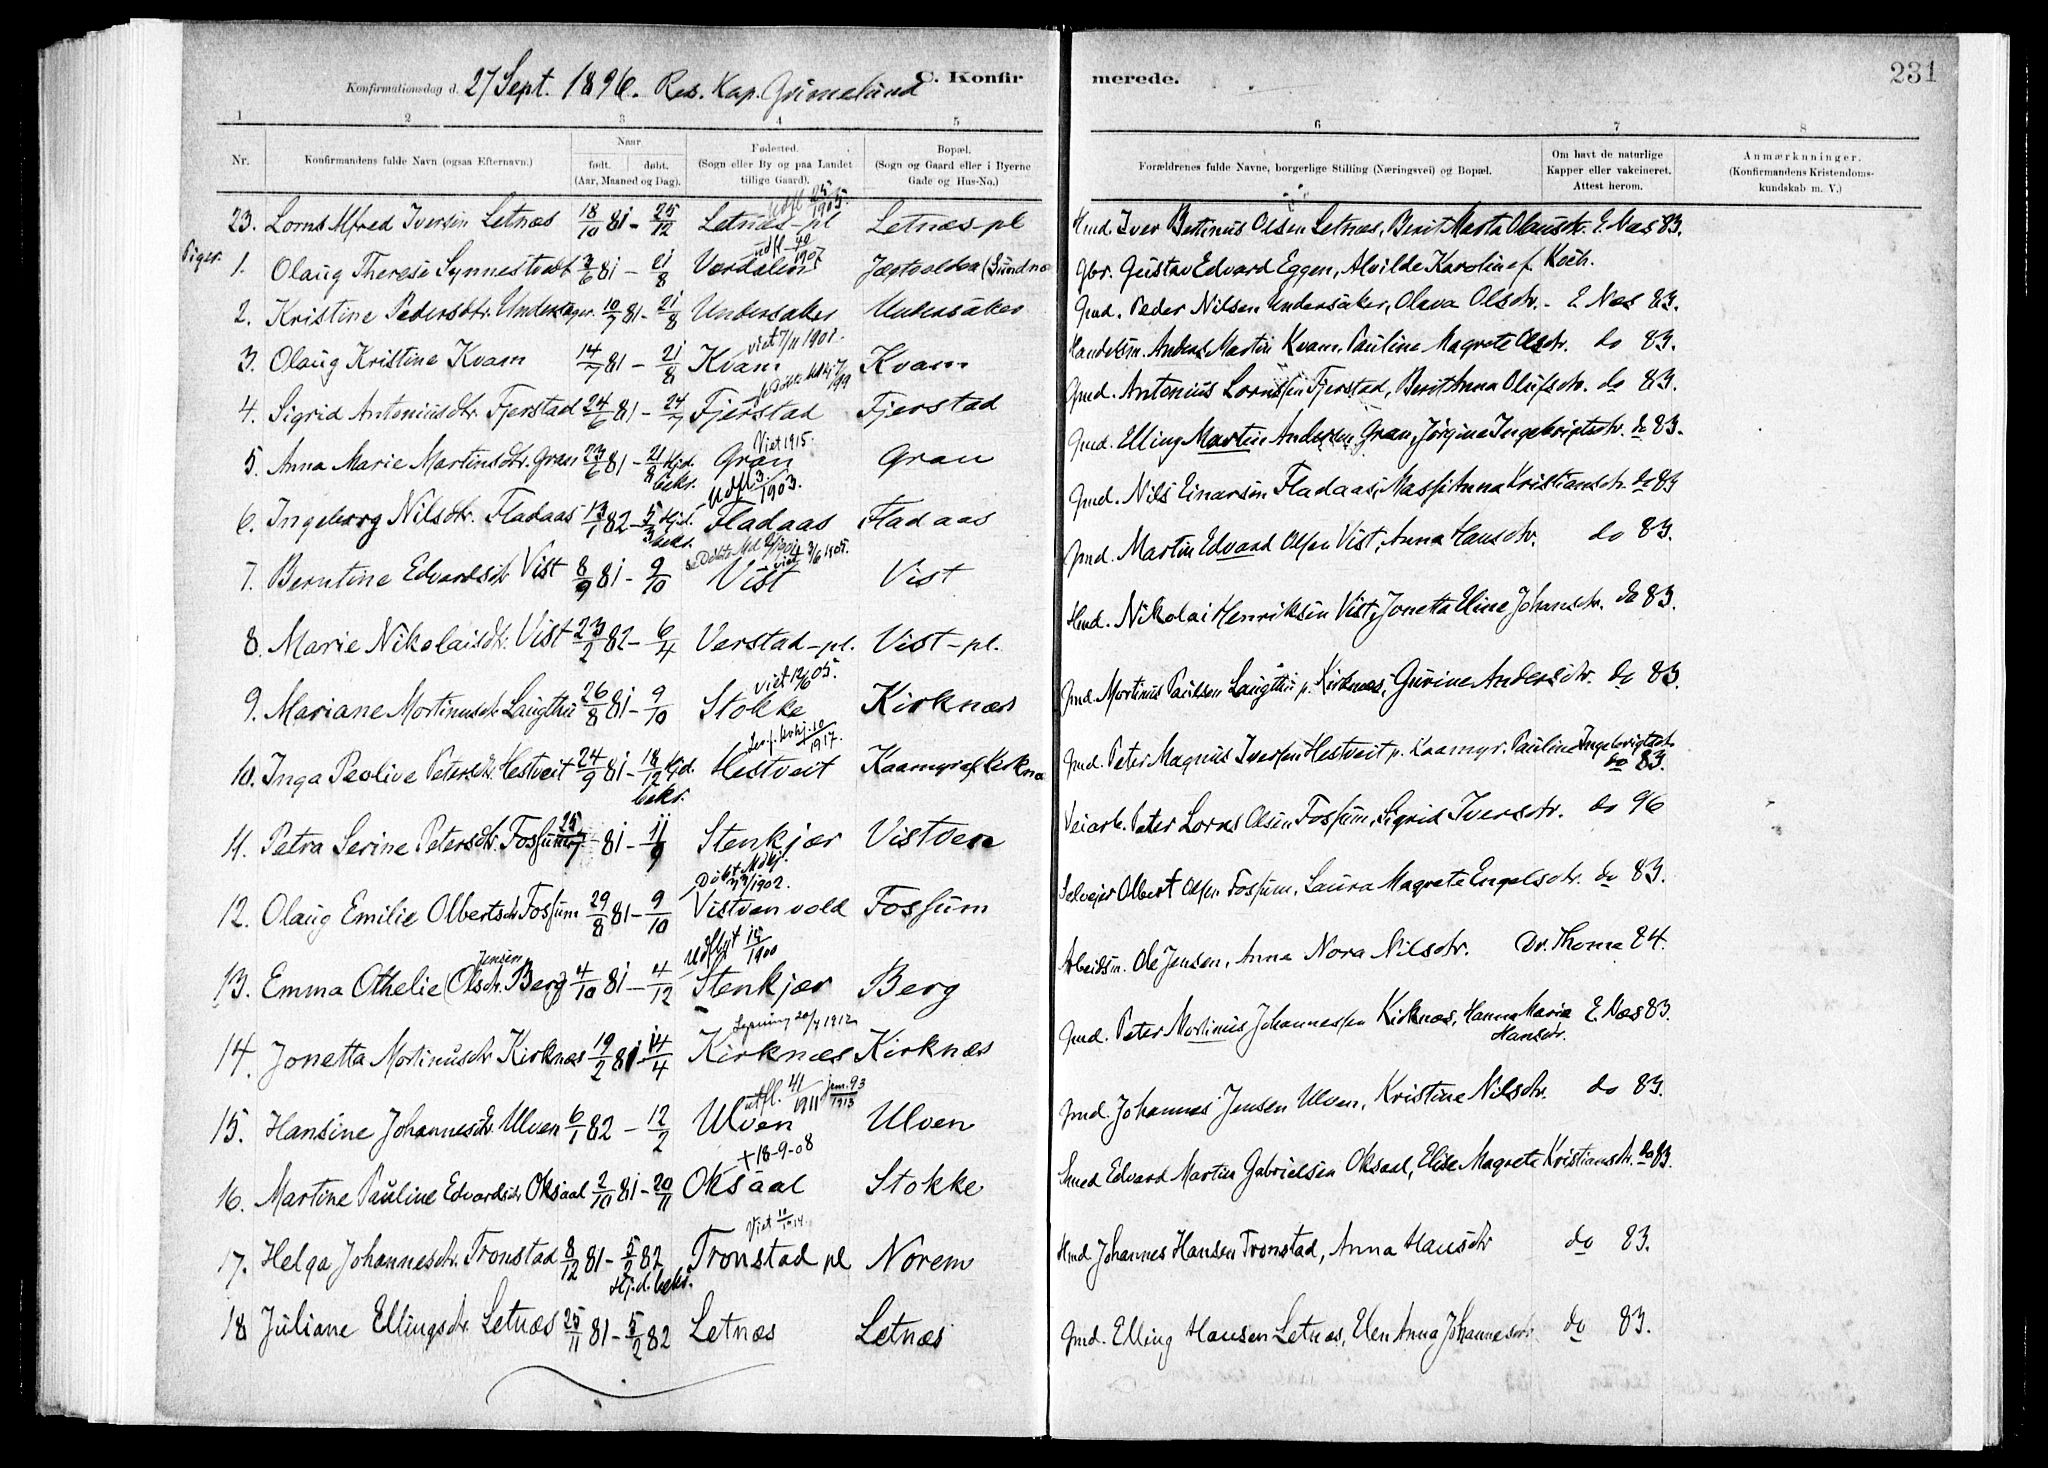 231
Konfirmationsdag d. 27 Sept. 1896. Res. Kap. Grimelund C. Konfirmerede.
1 2 3 4 5 6 7 8
Nr. Konfirmandens fulde Navn (ogsaa Efternavn.) Naar født. døbt. (Aar, Maaned og Dag). Fødested. (Sogn eller By og paa Landet tillige Gaard). Bopæl. (Sogn og Gaard eller i Byerne Gade og Hus-No.) Forældrenes fulde Navne, borgerlige Stilling (Næringsvei) og Bopæl. Om havt de naturlige Kapper eller vakcineret. Attest herom. Anmærkninger. (Konfirmandens Kristendomskundskab m. V.)
23. Lorns Alfred Iversen Letnæs 18/10 81 - 25/12 Letnæs-pl Letnæs-pl Hmd. Iver Betinus Olsen Letnæs, Berit Marta Olausdr. E. Næs 83.
Piger.
1. Olaug Therese Synnestvedt 3/6 81 - 21/8 Værdalen Jæstvolden (Sundnæ Gbr. Gustav Edvard Eggen, Alvilde Karoline f. Koch.
2. Kristine Pedersdtr. Undersager 10/7 81 - 21/8 Undersaker Undersaker Gmd. Peder Nilsen Undersaker, Olava Olsdr. - E. Næs 83.
3. Olaug Kristine Kvam 14/7 81 - 21/8 Kvam viet 7/11 1901. Kvam Handelsm. Anders Martin Kvam, Pauline Magrete Olsdr. do 83.
4. Sigrid Antoniusdtr. Fjerstad 24/6 81 - 24/7 Fjerstad Fjerstad Gmd. Antonius Lornsen Fjerstad, Berit Anna Olufsdr. do 83.
5. Anna Marie Martinsdtr. Gran 23/6 81 - 21/8 Hjd. bekr. Gran Viet 1915. Gran Gmd. Elling Martin Andersen Gran, Jørgine Ingebrigtsdr. do 83.
6. Ingeborg Nilsdtr. Fladaas 13/1 82 - 5/3 Hjd. bekr. Fladaas Udfl. 3/1903. Fladaas Gmd. Nils Einarsen Fladaas, Massi Anna Kristiansdr. do 83
7. Berntine Edvardsdr. Vist 8/9 81 - 9/10 Vist viet 3/6 1905. Vist Gmd. Martin Edvard Olsen Vist, Anna Hansdr. do 83.
8. Marie Nikolaisdtr. Vist 23/2 82 - 6/4 Verstad-pl. Vist-pl. Hmd. Nikolai Henriksen Vist, Jonetta Eline Johansdr. do 83.
9. Mariane Mortinusdr. Laugthu 26/8 81 - 9/10 Stokke viet 12/6 05. Kirknæs Gmd. Mortinus Paulsen Laugthu p. Kirknæs, Gurine Andersdr. do 83.
10. Inga Peolive Petersdr. Hestveit 24/9 81 - 18/12 Hjd. bekr. Hestveit Kaamyr af Kirknæ Gmd. Peter Magnus Iversen Hestveit p. Kaamyr. Pauline Ingebrigtsdr. do 83.
11. Petra Serine Petersdtr. Fossum 25/7 81 - 11/9 Stenkjær Vistven Veiarb. Peter Lorns Olsen Fossum, Sigrid Iversdr. do 96
12. Olaug Emilie Olbertsdr. Fossum 29/8 81 - 9/10 Vistvenvold Fossum Selveier Olbert Olsen Fossum, Laura Magrete Engelsdr. do 83.
13. Emma Othelie (Olsdr. Berg) Jensen 4/10 81 - 4/12 Stenkjær udflyt 15/1900 Berg Arbeidsm. Ole Jensen, Anna Nora Nilsdr. Dr. Thoma 84.
14. Jonetta Mortinusdr. Kirknæs 19/2 81 - 14/4 Kirknæs Lysning 20/4 1912 Kirknæs Gmd. Peter Mortinus Johannessen Kirknæs, Hanna Maria Hansdr. E. Næs 83.
15. Hansine Johannesdr. Ulven 6/1 82 - 12/2 Ulven utfl. 41/1911 jem. 93/1913 Ulven Gmd. Johannes Jensen Ulven, Kristine Nilsdr. do 83.
16. Martine Pauline Edvardsdr. Oksaal 2/10 81 - 20/11 Oksaal + 18-9-08 Stokke Smed Edvard Martin Gabrielsen Oksaal, Elise Magrete Kristiansdr. do 83.
17. Helga Johannesdr. Tronstad 8/12 81 - 5/2 82 Hj.d. bekr. Tronstad pl Norem Hmd Johannes Hansen Tronstad, Anna Hansdr do 83.
18 Juliane Ellingsdr. Letnæs 25/11 81 - 5/2 82 Letnæs Letnæs Gmd. Elling Hansen Letnæs, Elen Anna Johannesdr do 83.